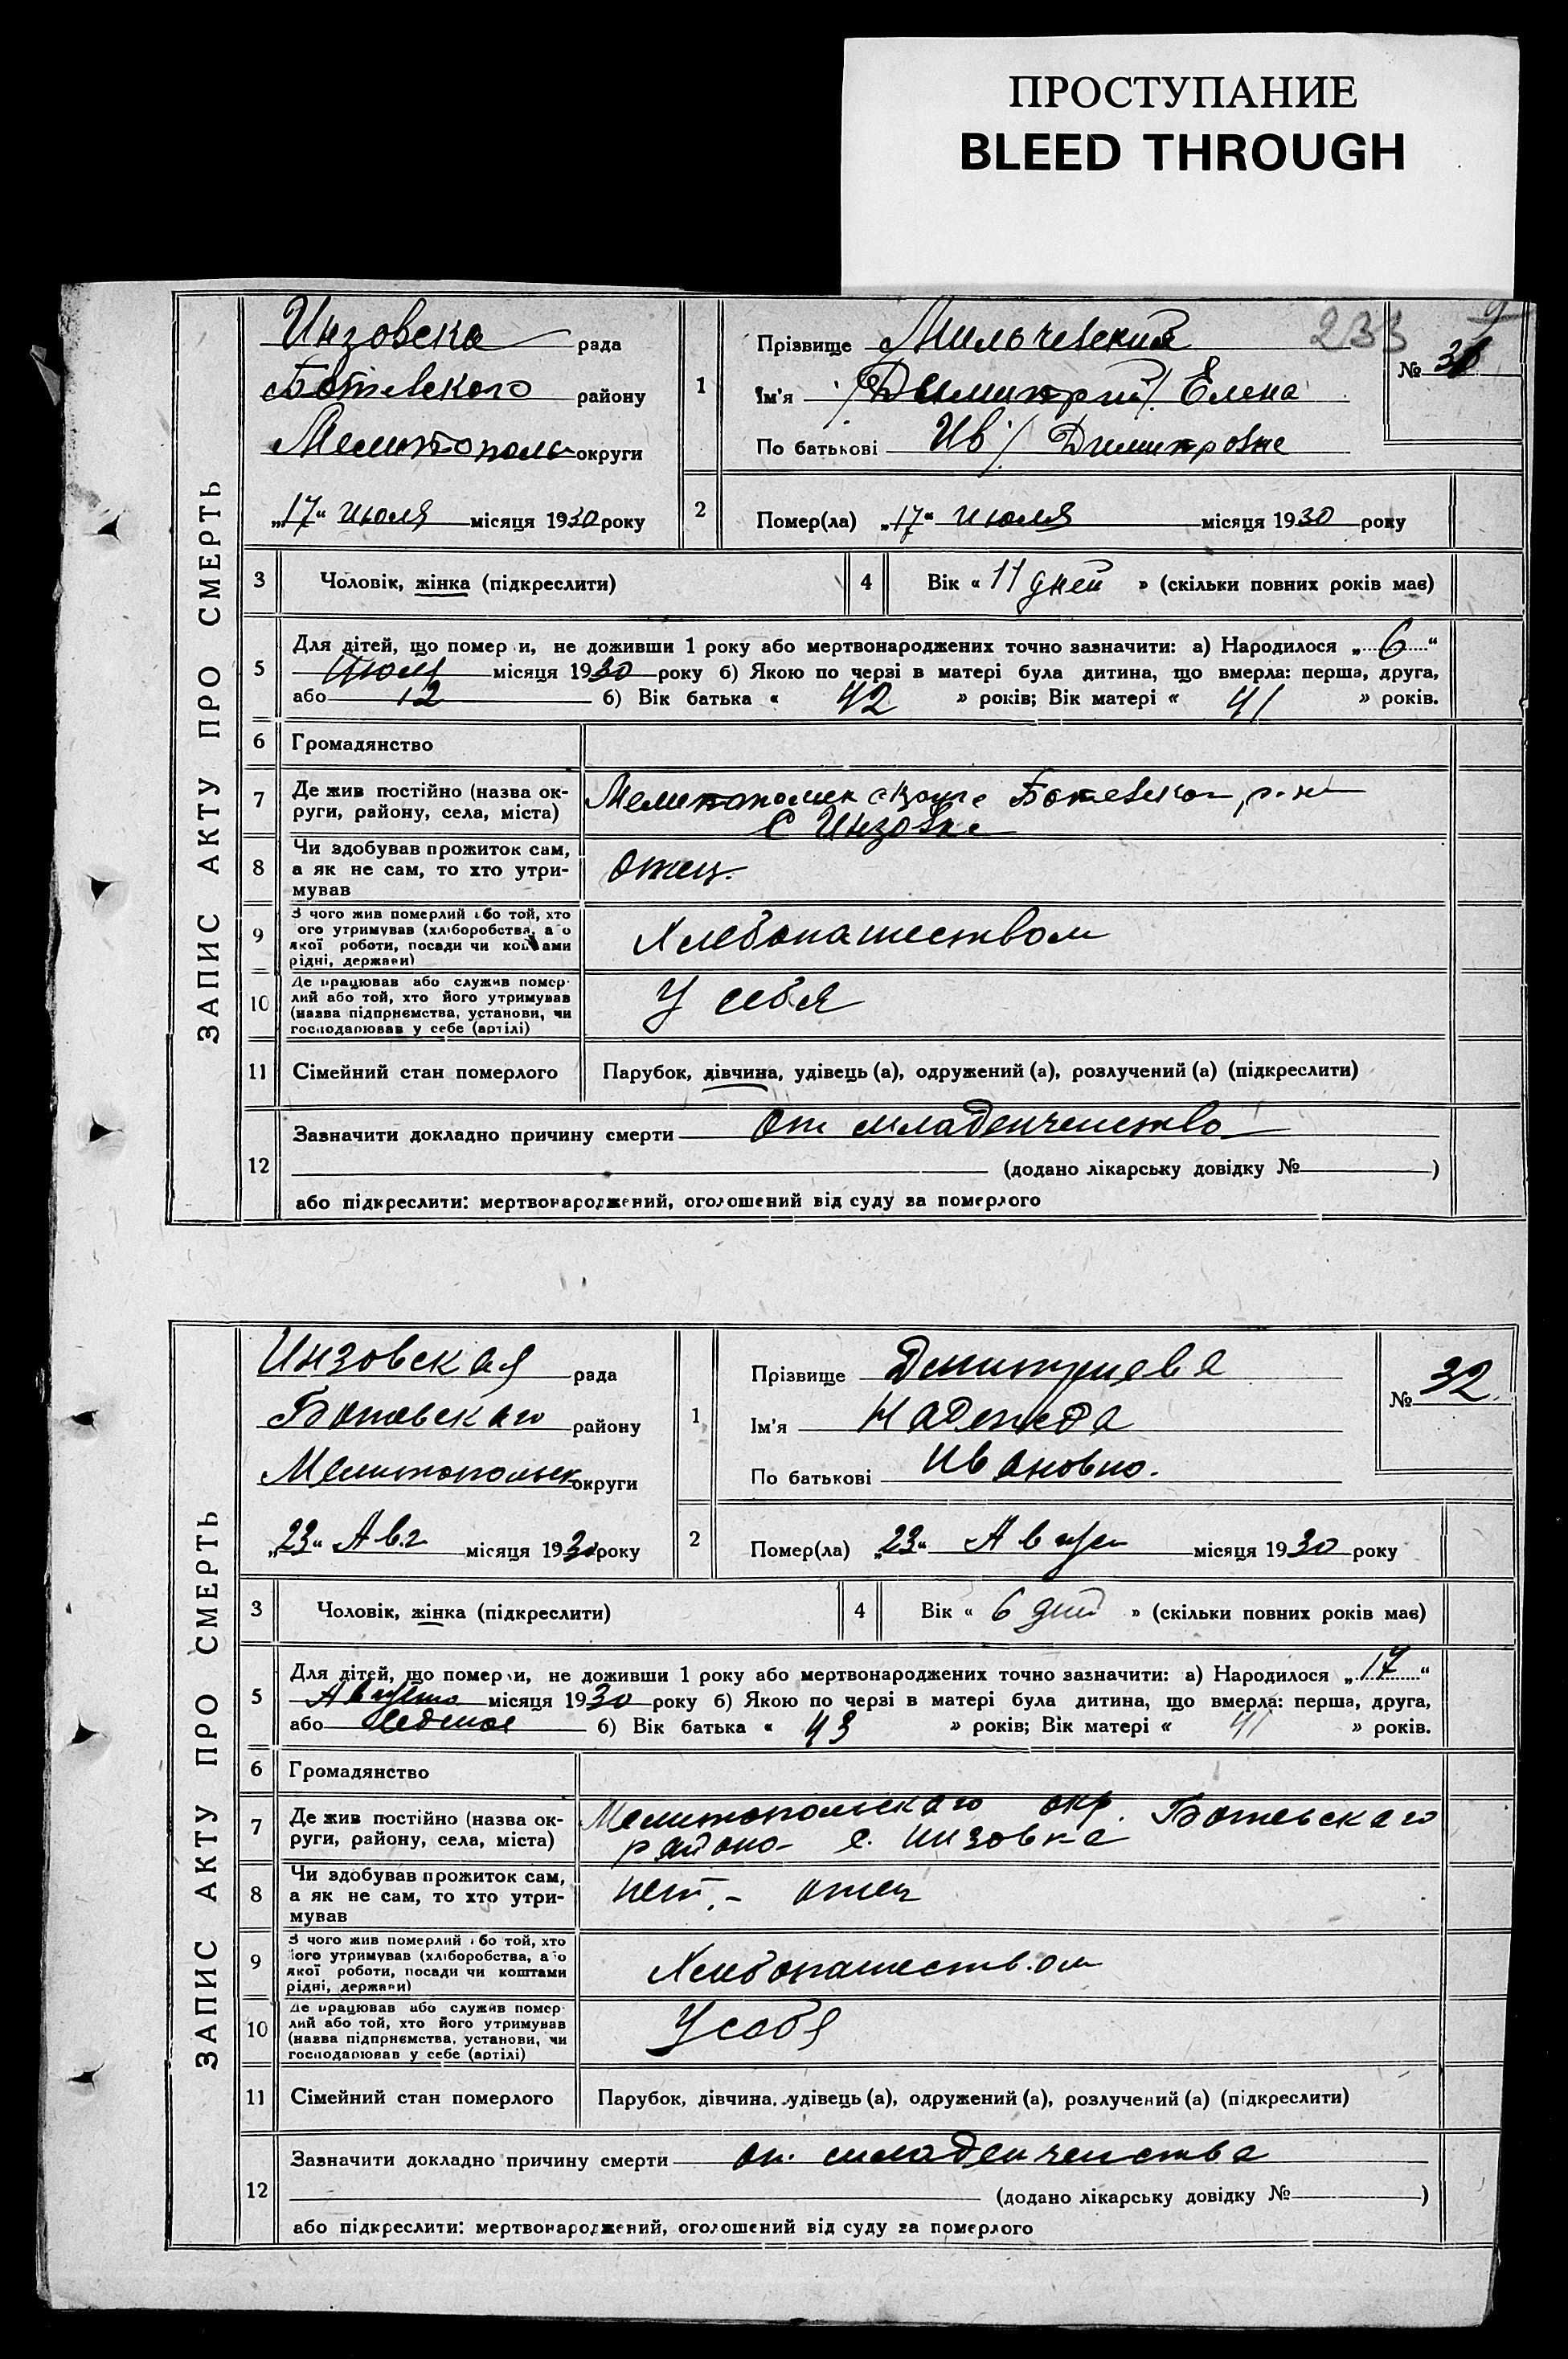 ПРОСТУПАНИЕ
BLEED THROUGH
233
ЗАПИС АКТУ ПРО СМЕРТЬ
Инзовска рада
Ботевского району
Мелитополь округи
„17“ июля місяця 1930 року
1
Прізвище Мильчевский
Ім'я /Димитрий/ Елена
По батькові Ив/ Димитровне
№ 31
2
Помер(ла) „17“ июля місяця 1930 року
3 Чоловік, жінка (підкреслити)
4 Вік « 11 дней » (скільки повних років має)
5 Для дітей, що помер и, не доживши 1 року або мертвонароджених точно зазначити: а) Народилося „ 6 “
Июля місяця 1930 року б) Якою по черзі в матері була дитина, що вмерла: перша, друга,
або 12 б) Вік батька « 42 » років; Вік матері « 41 » років.
6 Громадянство
7 Де жив постійно (назва ок-
руги, району, села, міста)
с Инзовка
8 Чи здобував прожиток сам,
а як не сам, то хто утри-
мував
отец.
9 З чого жив померлий або той, хто
ого утримував (хліборобства, або
якої роботи, посади чи коштами
рідні, держави)
Хлебопашеством
10 Де працював або служив помер-
лий або той, хто його утримував
(назва підприємства, установи, чи
господарював у себе (артілі)
У себя
11 Сімейний стан померлого Парубок, дівчина, удівець (а), одружений (а), розлучений (а) (підкреслити)
12 Зазначити докладно причину смерти От младенчество
(додано лікарську довідку № )
або підкреслити: мертвонароджений, оголошений від суду за померлого
ЗАПИС АКТУ ПРО СМЕРТЬ
Инзовская рада
Ботевскаго району
Мелитопольск округи
„23“ Авг місяця 1930 року
1
Прізвище Димитриева
Ім'я Надежда
По батькові Ивановна.
№ 32.
2
Помер(ла) „23“ Август місяця 1930 року
3 Чоловік, жінка (підкреслити)
4 Вік « 6 дней » (скільки повних років має)
5 Для дітей, що помер и, не доживши 1 року або мертвонароджених точно зазначити: а) Народилося „ 17 “
Августа місяця 1930 року б) Якою по черзі в матері була дитина, що вмерла: перша, друга,
або б) Вік батька « 43 » років; Вік матері « 41 » років.
6 Громадянство
7 Де жив постійно (назва ок-
руги, району, села, міста)
Мелитопольскаго окр. Ботевскаго
района с. Инзовка
8 Чи здобував прожиток сам,
а як не сам, то хто утри-
мував
нет. - отец
9 З чого жив померлий або той, хто
його утримував (хліборобства, або
якої роботи, посади чи коштами
рідні, держави)
Хлебопашеством
10 Де працював або служив помер-
лий або той, хто його утримував
(назва підприємства, установи, чи
господарював у себе (артілі)
У себя
11 Сімейний стан померлого Парубок, дівчина, удівець (а), одружений (а), розлучений (а) (підкреслити)
12 Зазначити докладно причину смерти от. младенчества
(додано лікарську довідку № )
або підкреслити: мертвонароджений, оголошений від суду за померлого